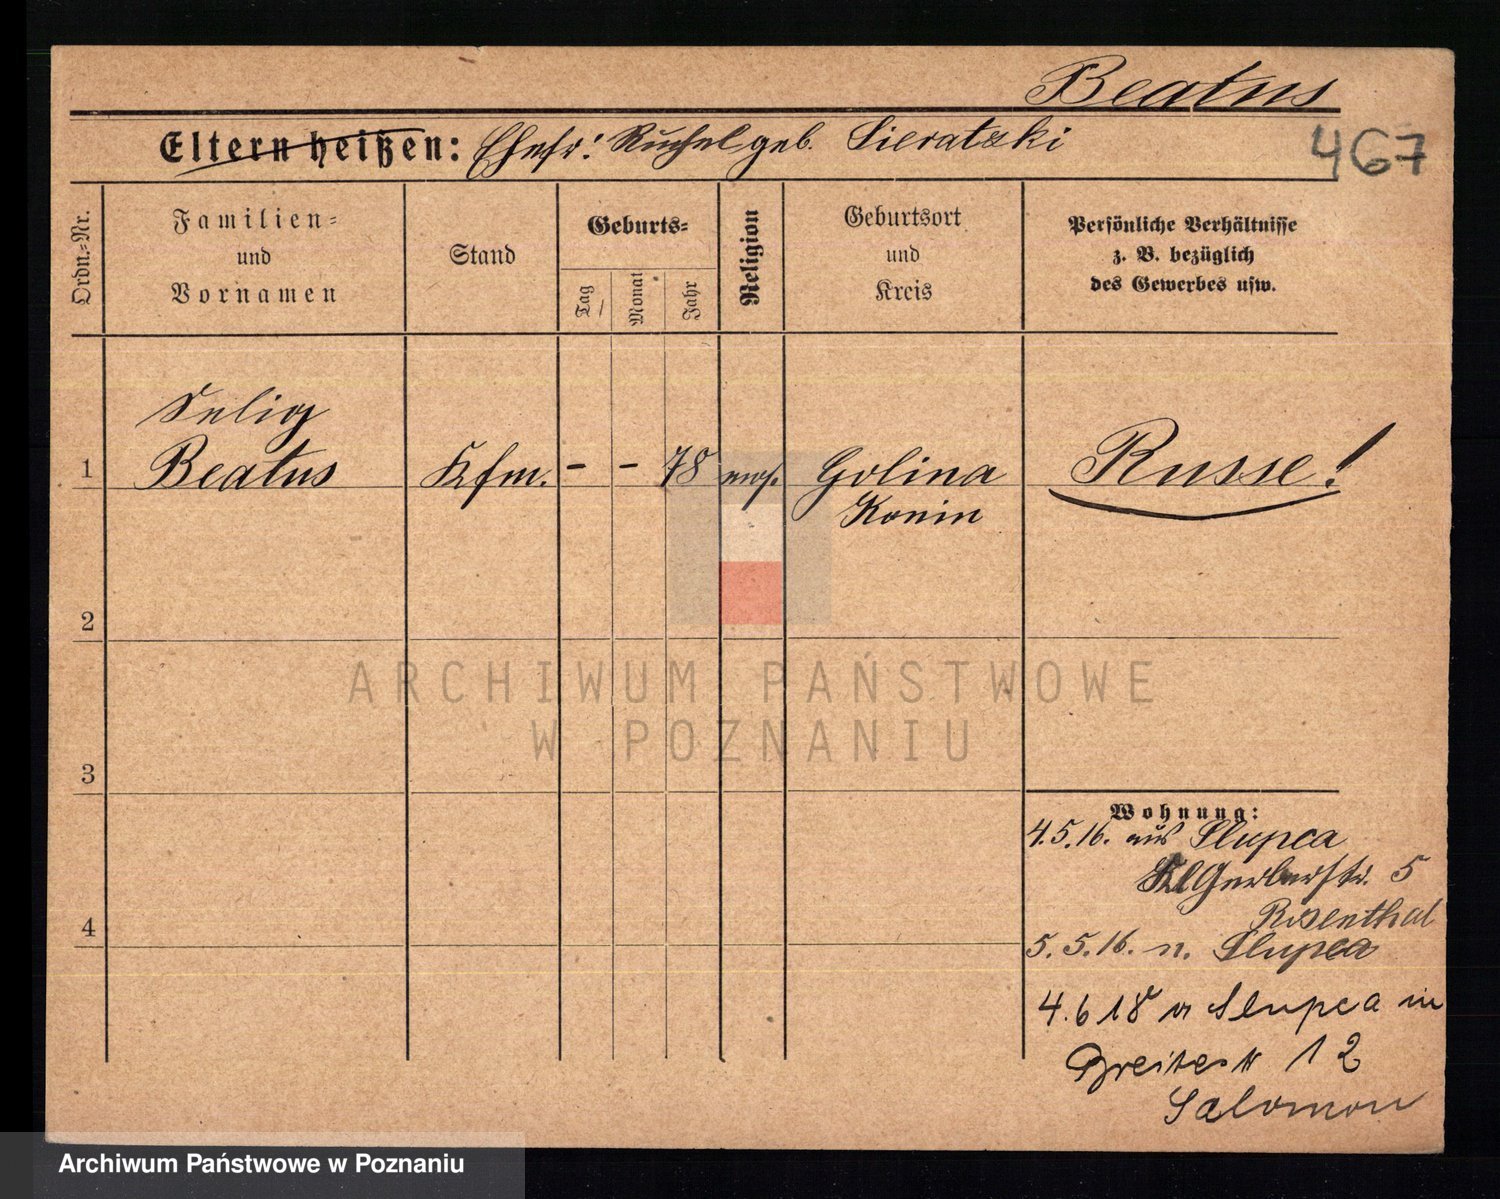 Beatus
467
Eltern heißen: Ehefr: Ruchel geb. Sieratzki
Ordn.=Nr.
Familien=
und
Vornamen
Stand
Geburts=
Tag
Monat
Jahr
Religion
Geburtsort
und
Kreis
Persönliche Verhältnisse
z. B. bezüglich
des Gewerbes usw.
Selig
1 Beatus Kfm. - - 78 mos. Golina Russe!
Konin
2
ARCHIWUM PAŃSTWOWE
W POZNANIU
3
Wohnung:
4.5.16. aus Slupca
Kl Gerberstr. 5
Rosenthal
4
5.5.16. n. Slupca
4.6 18 v Slupca in
Breitestr 12
Salomon
Archiwum Państwowe w Poznaniu